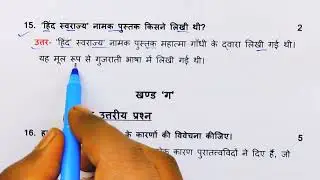 15. 'हिंद स्वराज्य' नामक पुस्तक किसने लिखी थी? 2
उत्तर- 'हिंद' स्वराज्य नामक पुस्तक महात्मा गाँधी के द्वारा लिखी गई थी।
यह मूल रूप से गुजराती भाषा में लिखी गई थी।
खण्ड 'ग'
उत्तरीय प्रश्न
16. के कारणों की विवेचना कीजिए। 5
कारण पुरातत्वविदों ने दिए हैं, जो